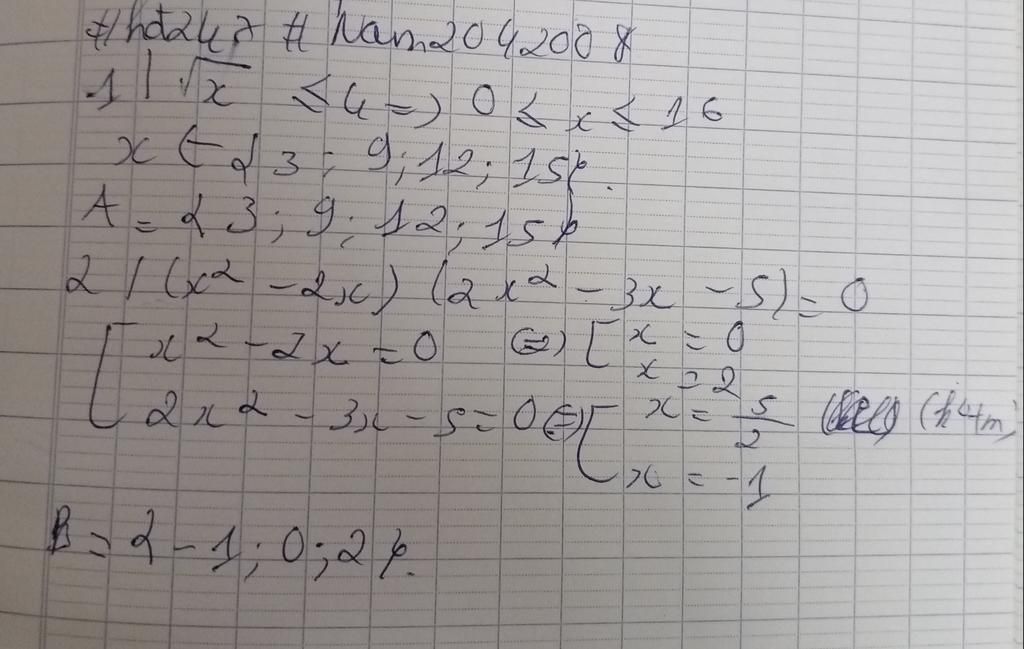 #hd247 #Nam2042008
1| √x ≤ 4 => 0 ≤ x ≤ 16
x ∈ {3; 9; 12; 15}.
A = {3; 9; 12; 15}
2/ (x² - 2x) (2x² - 3x - 5) = 0
[ x² - 2x = 0 <=> [ x = 0
x = 2
2x² - 3x - 5 = 0 <=> [ x = 5/2 (k tm)
x = -1
B = {-1; 0; 2}.